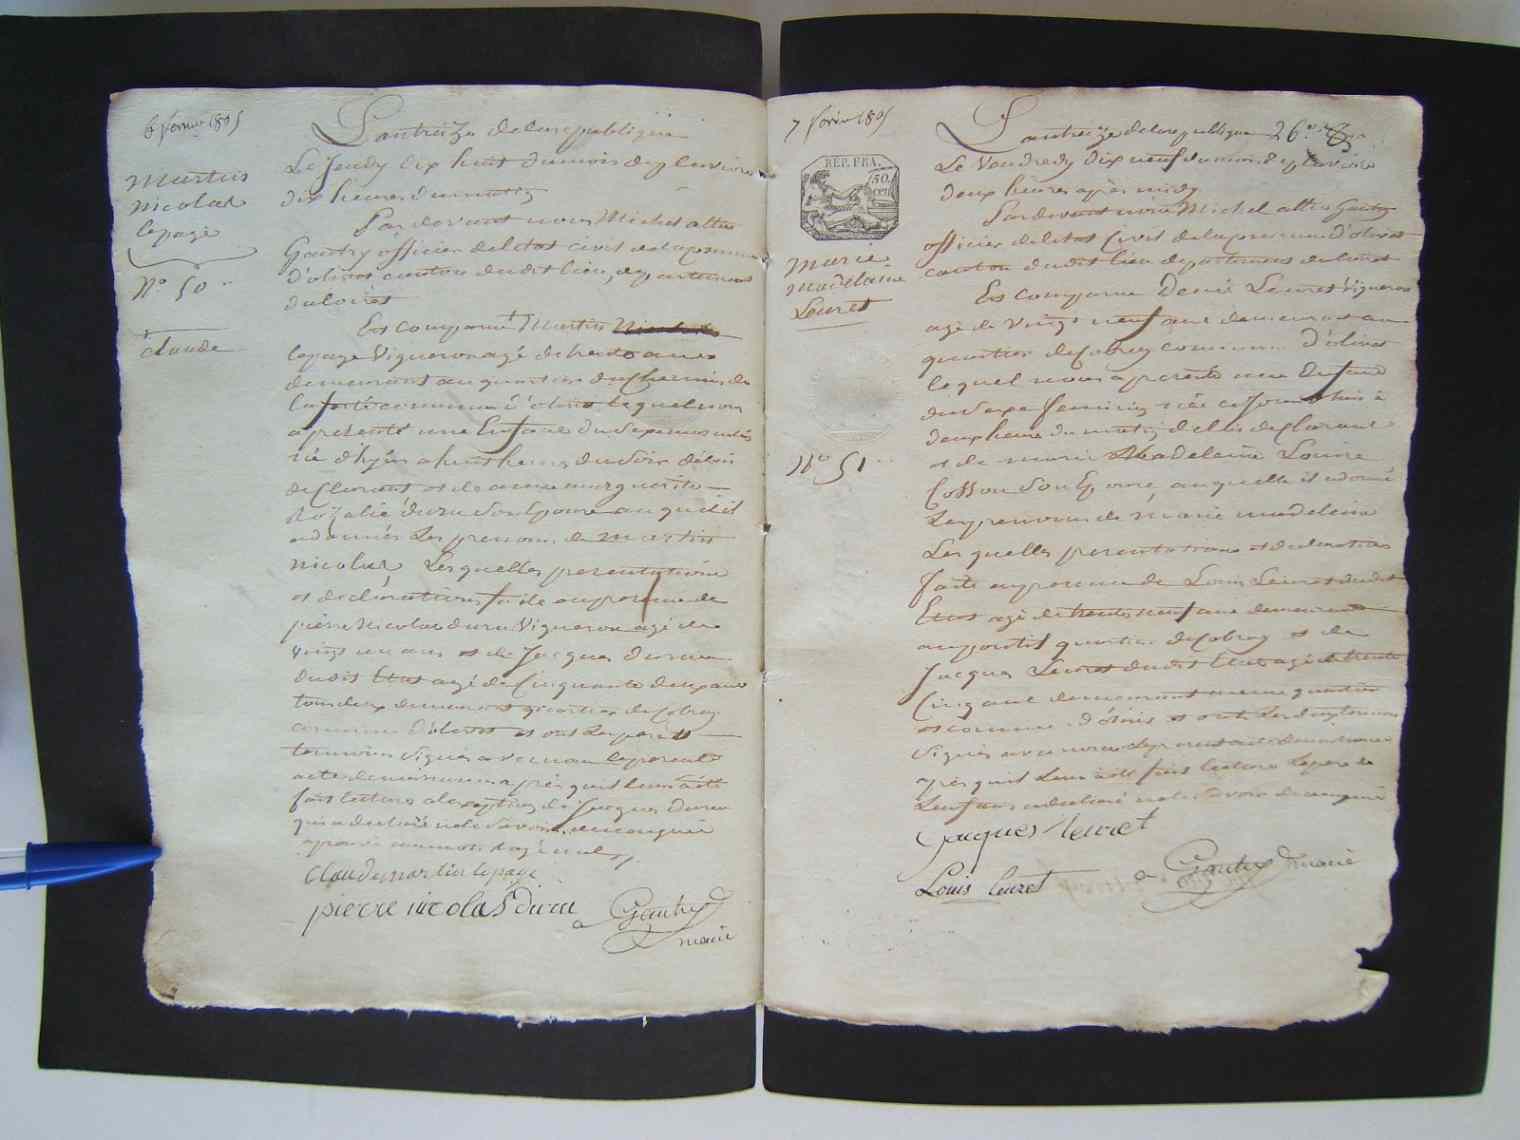 6 février 1805
Martin
Nicolas
lepage
N° 50
Claude
L'an treize de la republique
Le Jeudy dix huit du mois de pluviose
dix heures du matin
Par devant nous Michel
Gautry officier de l'etat civil de la commune
d'olivet canton du dit lieu, departement
du loiret
Est comparu Martin
lepage Vigneron agé de trente ans
demeurant au quartier du Chemin de
la ferté commune d'olivet lequel nous
a presenté une Enfant du sexe masculin
né d'hyer a huit heures du soir de lui
declarant et de anne margueritte
Rozalie duru son Epouse au quel il
a donné les prenoms de martin
nicolas Lesquelles presentations
et declarations faite en presence de
pierre Nicolas duru Vigneron agé de
vingt un ans et de Jacques dureau
du dit Etat agé de Cinquante deux ans
tous deux demeurant quartier de Cobray
commune d'olivet et ont les pere et
temoins signés avec nous le present
acte de naissance après qu'il leur a été
fait lecture a l'exception de Jacques dureau
qui a declaré ne le savoir de ce enquis
claude martin lepage
pierre nicolas Duru
Gautry
maire
7 février 1805
REP. FRA.
50
cen
Marie
Madelaine
Leuret
N° 51
L'an treize de la republique
Le Vendredy dix neuf du mois de pluviose
deux heures après midy
Par devant nous Michel Gautry
officier de l'etat Civil de la commune d'olivet
canton du dit lieu departement du loiret
Est comparu Denis Leuret Vigneron
agé de vingt neuf ans demeurant au
quartier de Cobray commune d'olivet
lequel nous a presenté une Enfant
du sexe feminin née ce jourd'huis à
deux heures du matin de lui declarant
et de marie Madeleine Louise
Cosson son Epouse, a laquelle il a donné
Les prenoms de marie madeleine
Lesquelles presentations et declarations
faite en presence de Louis Leuret du dit
Etat agé de trente neuf ans demeurant
au petit quartier de Cobray et de
Jacques Leuret du dit Etat agé de trente
Cinq ans demeurant meme quartier
et commune d'olivet et ont les deux temoins
signés avec nous le present acte de naissance
après qu'il leur a été fait lecture le pere de
L'enfant a declaré ne le savoir de ce enquis
Jacques leuret
Louis leuret
Gautry maire